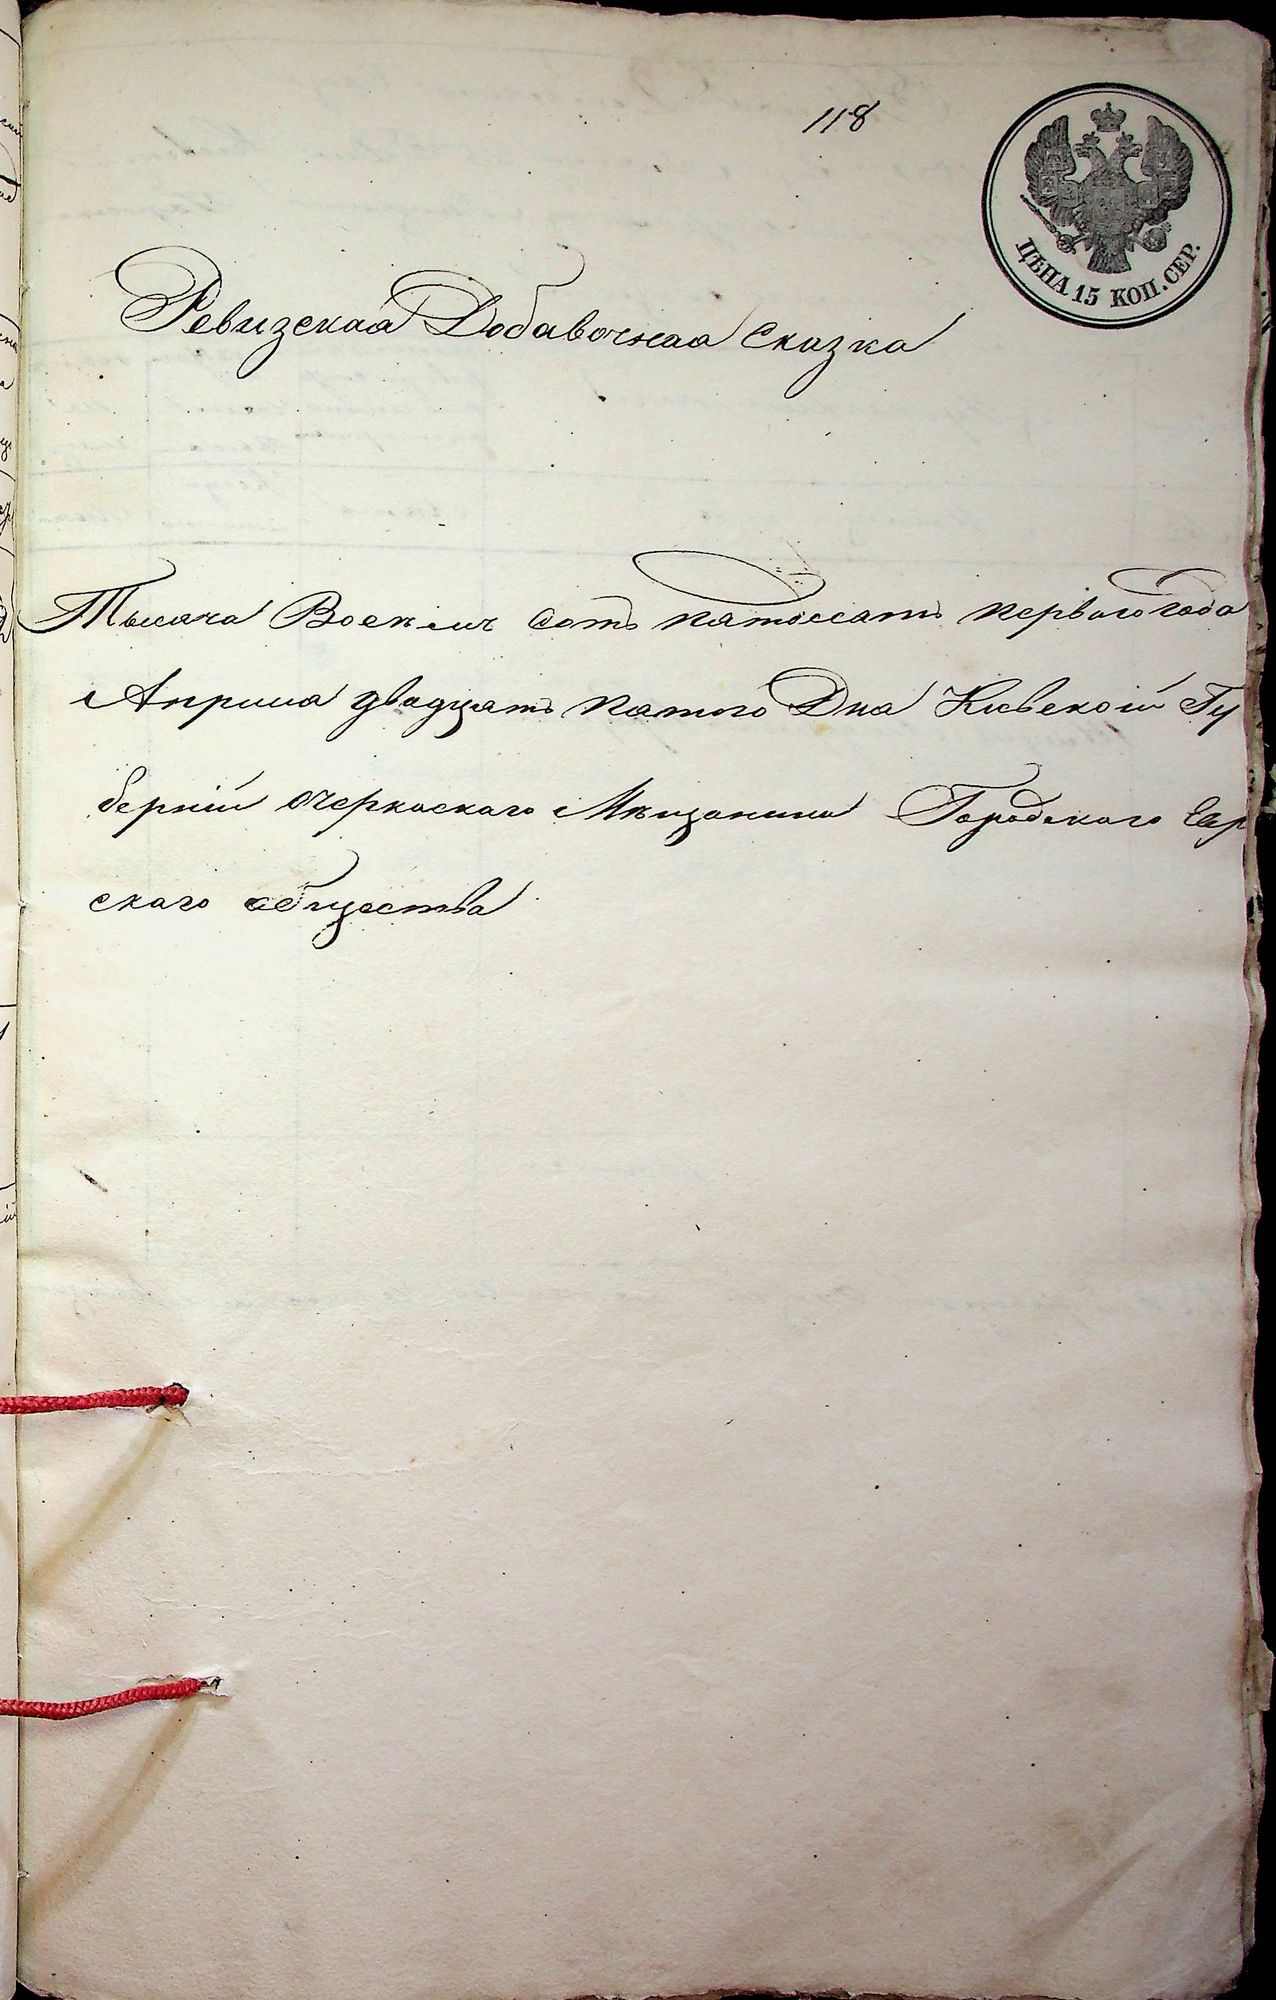 118
ЦѢНА 15 КОП. СЕР.
Ревизская Добавочная сказка
Тысяча Восемь сотъ пятдесятъ перваго года
Априля двадцать пятого Дня Кіевской Гу
берніи Черкаскаго Мѣщанина Городскаго Евр
скаго общества